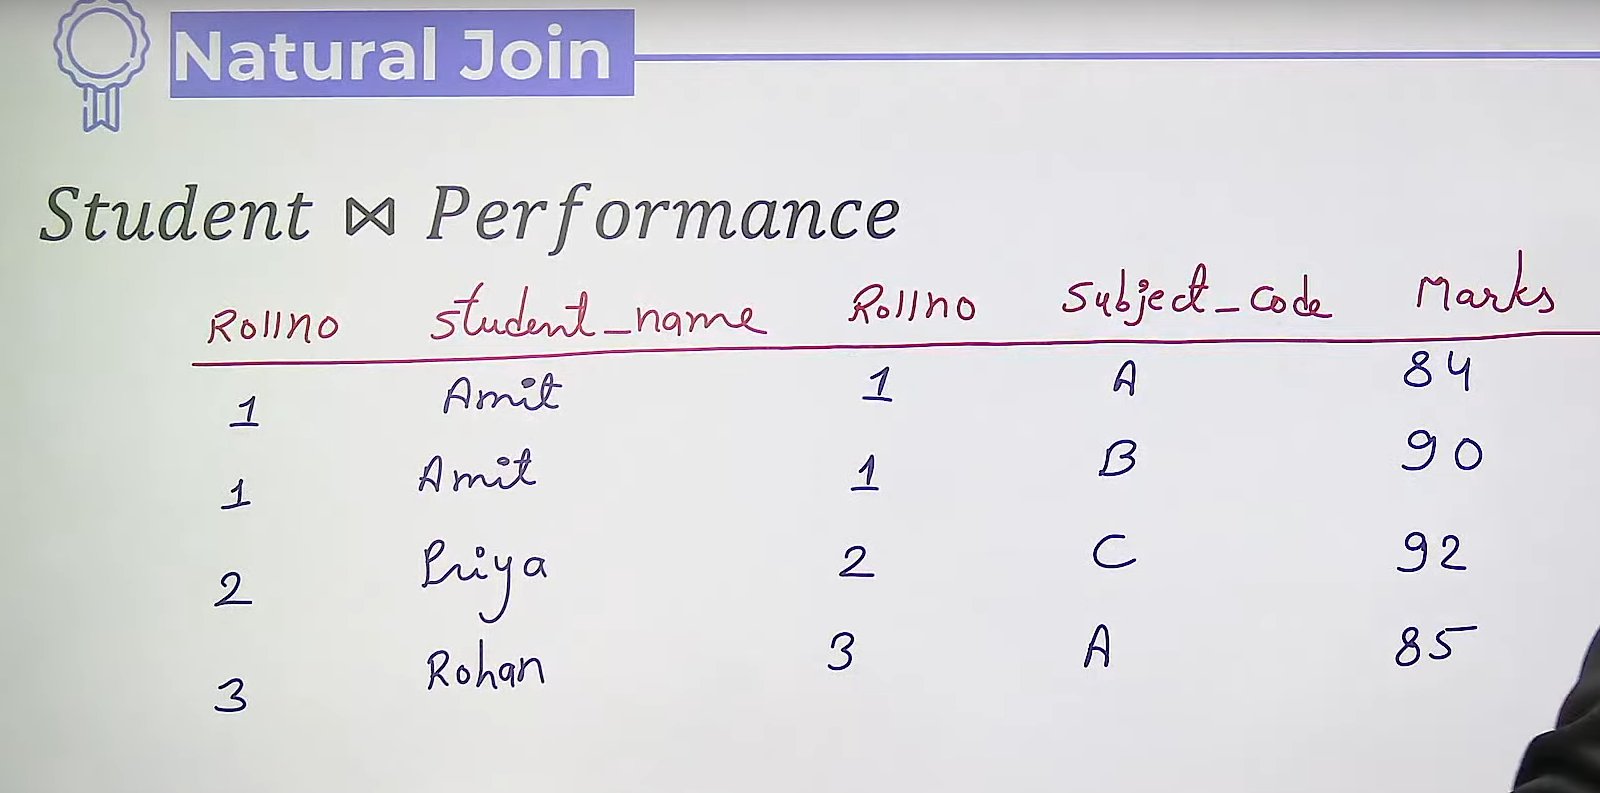 Natural Join
Student ⋈ Performance
Rollno student_name Rollno Subject_Code Marks
1 Amit 1 A 84
1 Amit 1 B 90
2 Priya 2 C 92
3 Rohan 3 A 85